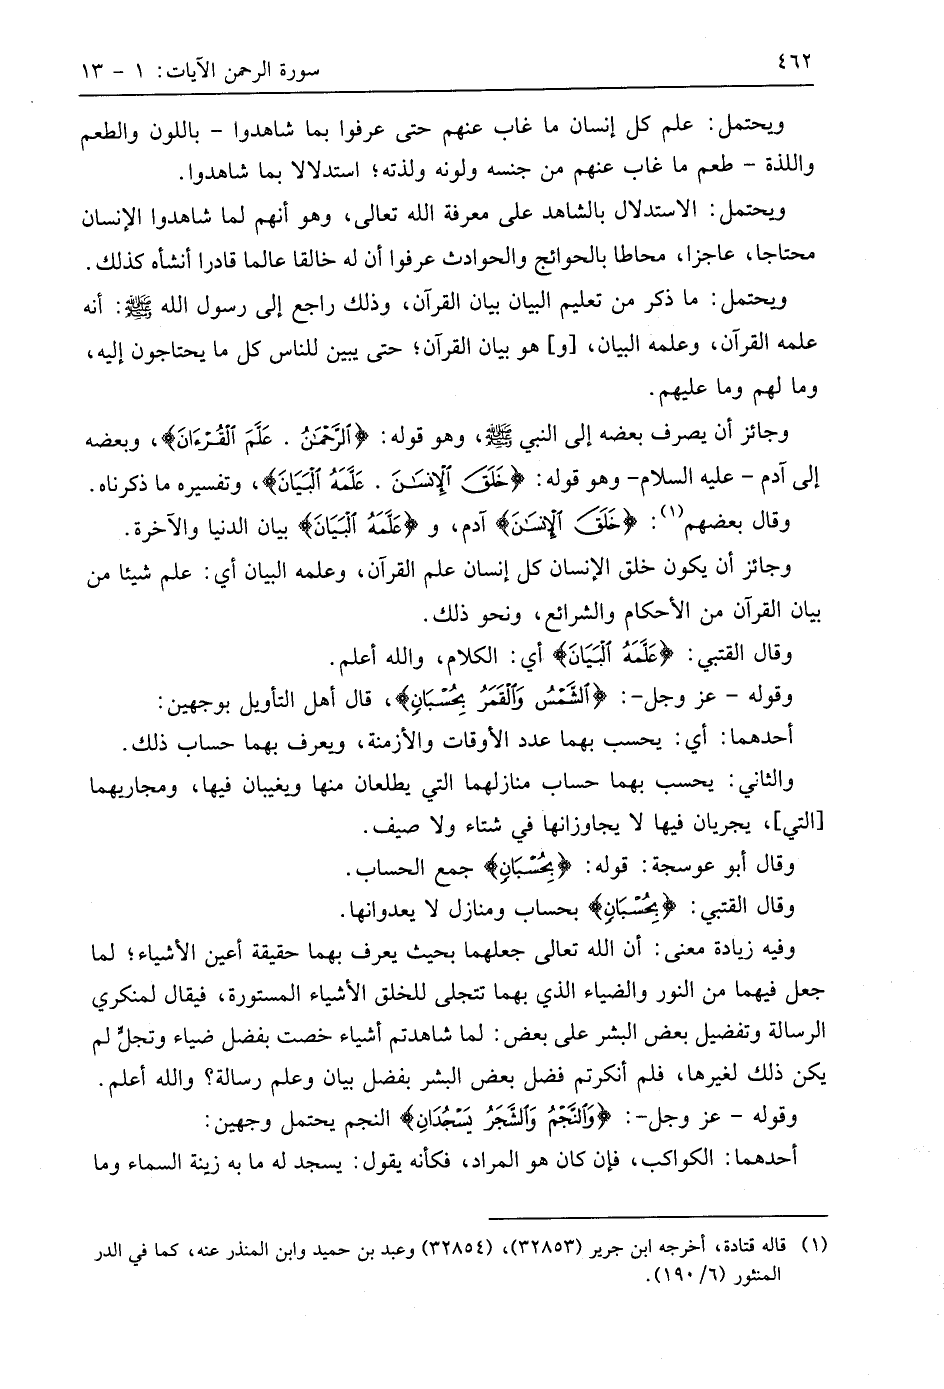 ٤٦٢
سورة الرحمن الآيات: ١ - ١٣
ويحتمل: علم كل إنسان ما غاب عنهم حتى عرفوا بما شاهدوا - باللون والطعم
واللذة - طعم ما غاب عنهم من جنسه ولونه ولذته؛ استدلالا بما شاهدوا.
ويحتمل: الاستدلال بالشاهد على معرفة الله تعالى، وهو أنهم لما شاهدوا الإنسان
محتاجا، عاجزا، محاطا بالحوائج والحوادث عرفوا أن له خالقا عالما قادرا أنشأه كذلك.
ويحتمل: ما ذكر من تعليم البيان بيان القرآن، وذلك راجع إلى رسول الله ﷺ: أنه
علمه القرآن، وعلمه البيان، [و] هو بيان القرآن؛ حتى يبين للناس كل ما يحتاجون إليه،
وما لهم وما عليهم.
وجائز أن يصرف بعضه إلى النبي ﷺ، وهو قوله: ﴿ٱلرَّحْمَٰنُ . عَلَّمَ ٱلْقُرْءَانَ﴾، وبعضه
إلى آدم - عليه السلام- وهو قوله: ﴿خَلَقَ ٱلْإِنسَٰنَ . عَلَّمَهُ ٱلْبَيَانَ﴾، وتفسيره ما ذكرناه.
وقال بعضهم(١): ﴿خَلَقَ ٱلْإِنسَٰنَ﴾ آدم، و ﴿عَلَّمَهُ ٱلْبَيَانَ﴾ بيان الدنيا والآخرة.
وجائز أن يكون خلق الإنسان كل إنسان علم القرآن، وعلمه البيان أي: علم شيئا من
بيان القرآن من الأحكام والشرائع، ونحو ذلك.
وقال القتبي: ﴿عَلَّمَهُ ٱلْبَيَانَ﴾ أي: الكلام، والله أعلم.
وقوله - عز وجل-: ﴿ٱلشَّمْسُ وَٱلْقَمَرُ بِحُسْبَانٍ﴾، قال أهل التأويل بوجهين:
أحدهما: أي: يحسب بهما عدد الأوقات والأزمنة، ويعرف بهما حساب ذلك.
والثاني: يحسب بهما حساب منازلهما التي يطلعان منها ويغيبان فيها، ومجاريهما
[التي]، يجريان فيها لا يجاوزانها في شتاء ولا صيف.
وقال أبو عوسجة: قوله: ﴿بِحُسْبَانٍ﴾ جمع الحساب.
وقال القتبي: ﴿بِحُسْبَانٍ﴾ بحساب ومنازل لا يعدوانها.
وفيه زيادة معنى: أن الله تعالى جعلهما بحيث يعرف بهما حقيقة أعين الأشياء؛ لما
جعل فيهما من النور والضياء الذي بهما تتجلى للخلق الأشياء المستورة، فيقال لمنكري
الرسالة وتفضيل بعض البشر على بعض: لما شاهدتم أشياء خصت بفضل ضياء وتجلٍّ لم
يكن ذلك لغيرها، فلم أنكرتم فضل بعض البشر بفضل بيان وعلم رسالة؟ والله أعلم.
وقوله - عز وجل-: ﴿وَٱلنَّجْمُ وَٱلشَّجَرُ يَسْجُدَانِ﴾ النجم يحتمل وجهين:
أحدهما: الكواكب، فإن كان هو المراد، فكأنه يقول: يسجد له ما به زينة السماء وما
(١) قاله قتادة، أخرجه ابن جرير (٣٢٨٥٣)، (٣٢٨٥٤) وعبد بن حميد وابن المنذر عنه، كما في الدر
المنثور (٦/ ١٩٠).